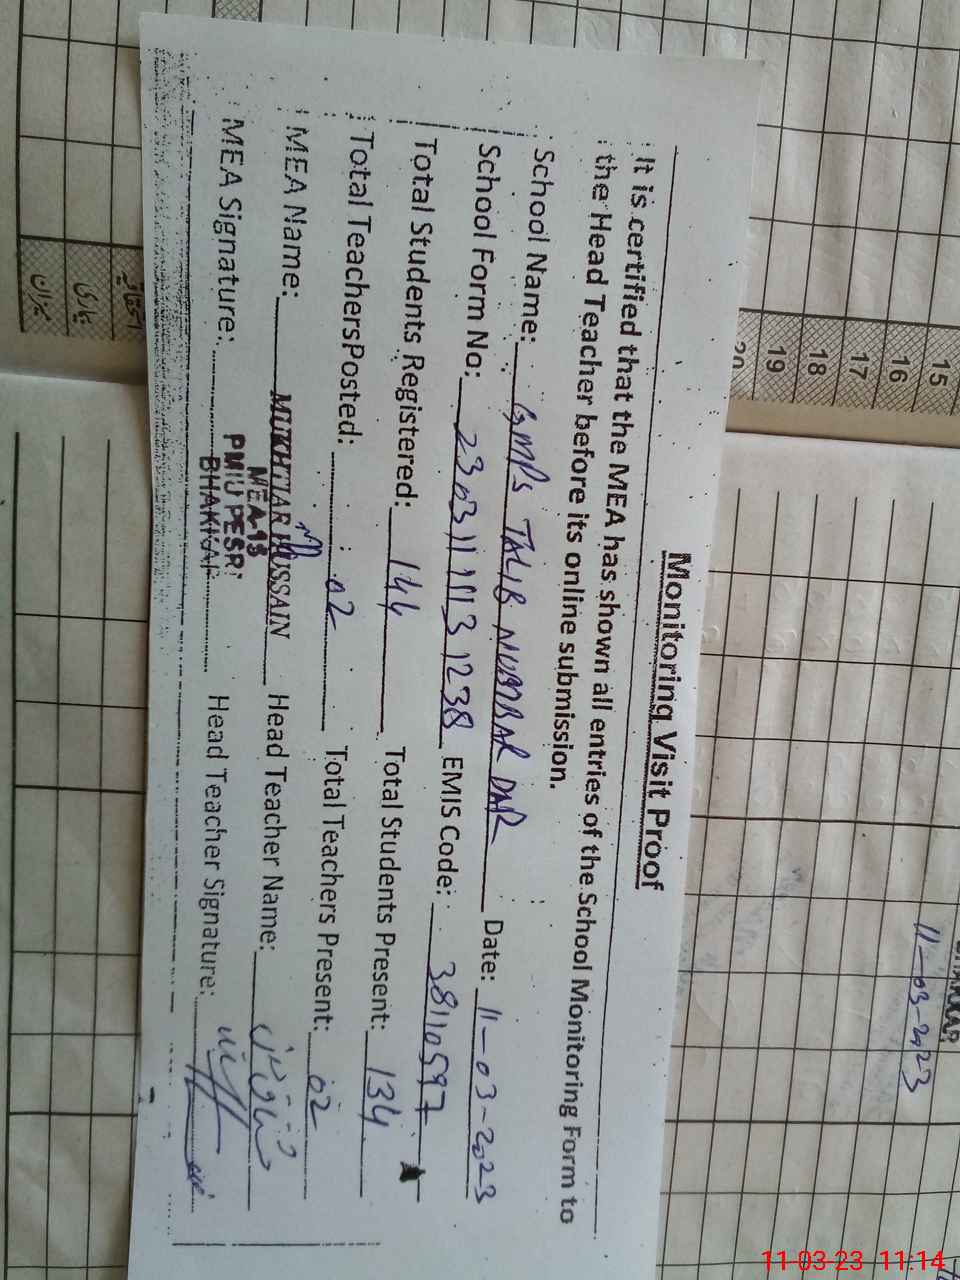 Monitoring Visit Proof
It is certified that the MEA has shown all entries of the School Monitoring Form to
the Head Teacher before its online submission.
School Name: GMPS TALIB NUMBAR DAR Date: 11-03-2023
School Form No: 23031111131238 EMIS Code: 38110597
Total Students Registered: 144 Total Students Present: 134
Total Teachers Posted: 02 Total Teachers Present: 02
MEA Name: MUKHTIAR HUSSAIN Head Teacher Name:
MEA-18
MEA Signature: PMIU PESRP Head Teacher Signature:
BHAKKAR
15
16
17
18
19
20
میزان
BHAKKAR
11-03-2023
11-03-23 11:14